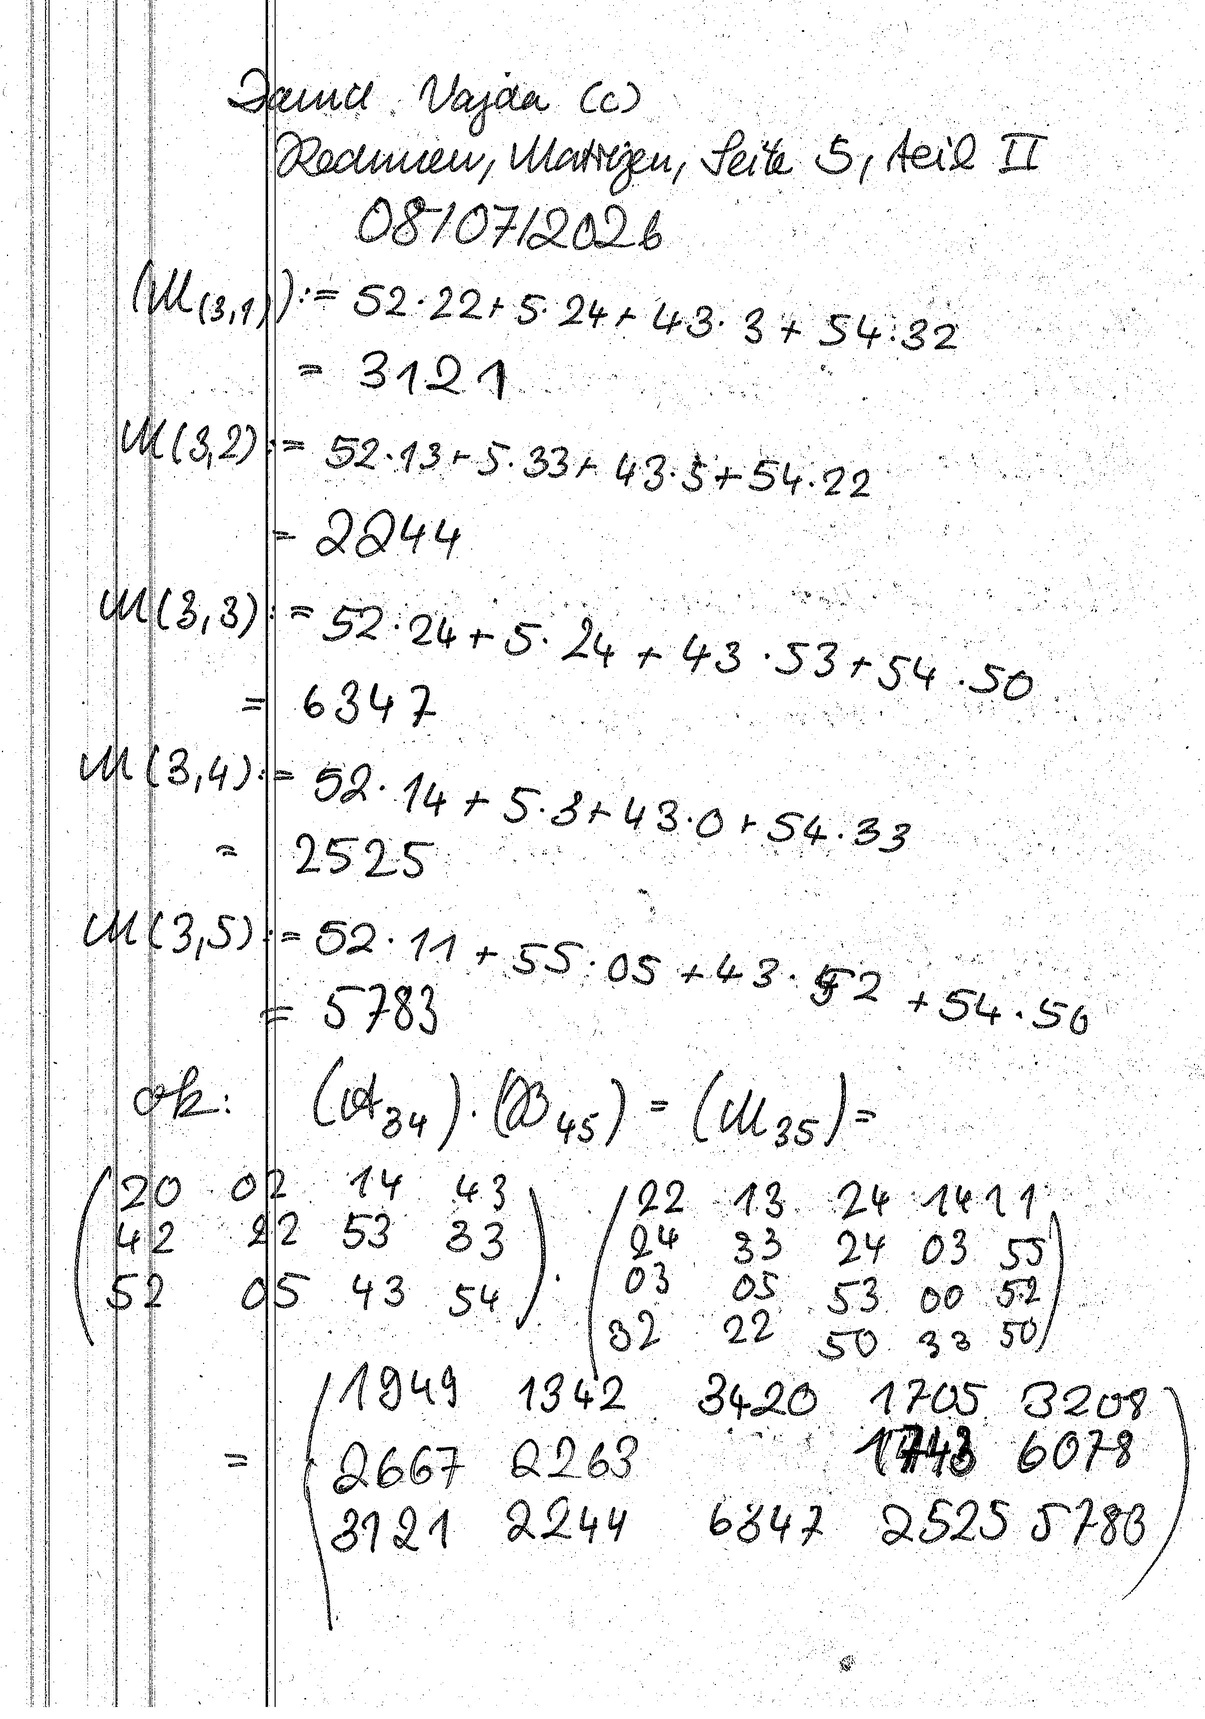 Daniel Vajda (c)
Rechnen, Matrizen, Seite 5, Teil II
08/07/2026
(M(3,1)) := 52·22+5·24+43·3+54·32
= 3121
M(3,2) := 52·13+5·33+43·5+54·22
= 2244
M(3,3) := 52·24+5·24+43·53+54·50
= 6347
M(3,4) := 52·14+5·3+43·0+54·33
= 2525
M(3,5) := 52·11+55·05+43·52+54·50
= 5783
ok: (A34)·(B45) = (M35) =
(20 02 14 43) (22 13 24 14 11)
(42 22 53 33) (24 33 24 03 55)
(52 05 43 54) · (03 05 53 00 52)
(32 22 50 33 50)
(1949 1342 3420 1705 3208)
= (2667 2263 1743 6078)
(3121 2244 6347 2525 5783)